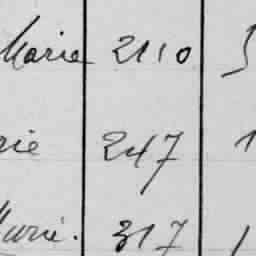 Marie 2110 5
rie 247 1
Marie. 317 1